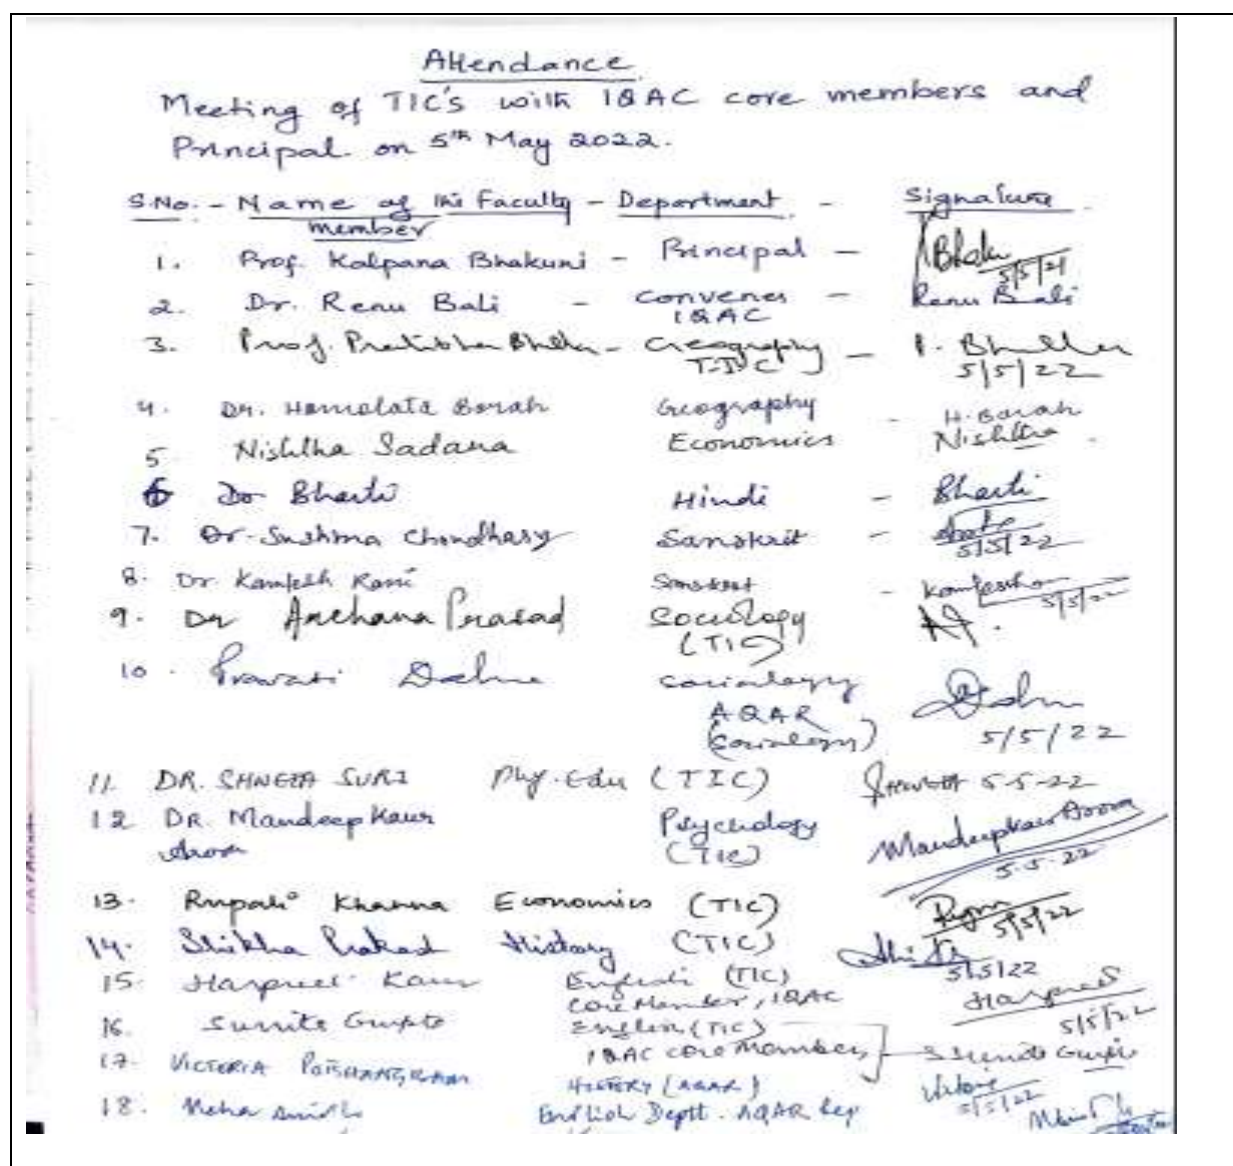 Attendance
Meeting of TIC's with IQAC core members and
Principal on 5th May 2022.
S.No. - Name of the Faculty - Department - Signature
member
1. Prof. Kalpana Bhakuni - Principal - 5/5/21
2. Dr. Renu Bali - Convener - Renu Bali
IQAC
3. Prof. Pratibha - Geography - P.
TIC 5/5/22
4. Dr. Hemolata Borah Geography - H. Borah
5 Nishtha Sadana Economics Nishtha
6 Dr Bharti Hindi - Bharti
7. Dr. Sushma Choudhary Sanskrit -
5/5/22
8. Dr Kamlesh Rani Sanskrit -
5/5/22
9. Dr Archana Prasad Sociology
(TIC)
10. Pravati Sociology
AQAR
(Sociology) 5/5/22
11. DR. SHWETA SURI Phy. Edu (TIC) 5-5-22
12 DR. Mandeep Kaur Psychology Mandeep Kaur Arora
Arora (TIC) 5.5.22
13. Rupali Khanna Economics (TIC)
5/5/22
14. Shikha Prakash History (TIC)
5/5/22
15. Harpreet Kaur English (TIC) Harpreet
Core Member, IQAC 5/5/22
16. Sunita Gupta English (TIC)
IQAC core Member Sunita Gupta
17. VICTORIA HISTORY (AQAR)
5/5/22
18. Neha English Deptt. AQAR Rep